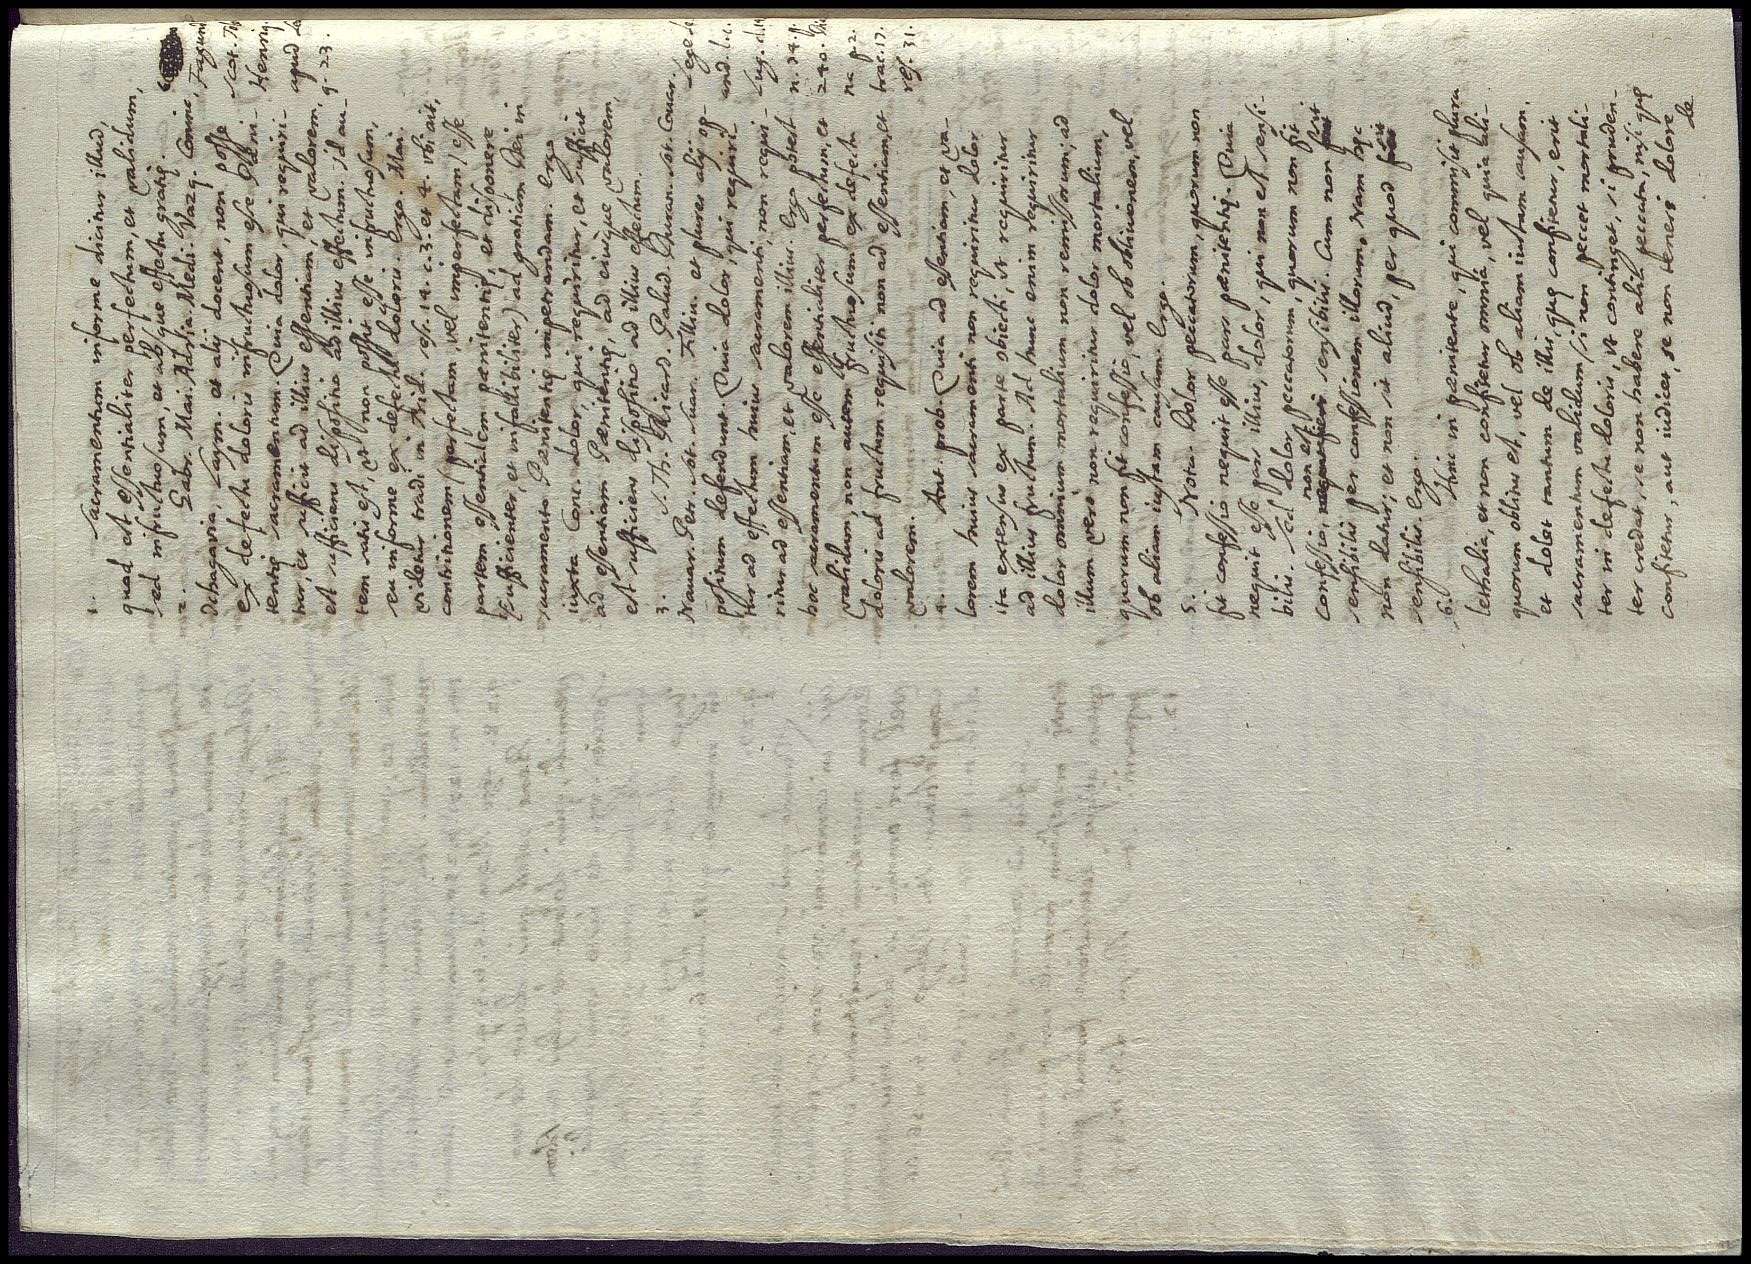 1. Sacramentum informe dicitur illud,
quod est essentialiter perfectum, et validum,
sed infructuosum, et absque effectu gratię.
2. Gabr. Mai. Adria. Medi. Vazq. Coninc,
Caym. et alij docent, non posse
ex defectu doloris infructuosum esse Pæni-
tentię sacramentum. Quia dolor, qui requiri-
tur, et sufficit ad illius essentiam, et valorem,
est sufficiens dispositio ad illius effectum. Id au-
tem satis est, ut non possit esse infructuosum,
seu informe ex defectu doloris. Ergo. Mai.
videtur tradi in Trid. ses. 14. c. 3. et 4. ubi ait,
contritionem (perfectam, vel imperfectam) esse
partem essentialem pænitentię, et disponere
(sufficienter, et infallibiliter) ad gratiam Dei in
sacramento Pænitentię impetrandam. Ergo
iuxta Conc. dolor, qui requiritur, et sufficit
ad essentiam Pænitentię, ad eiusque valorem,
est sufficiens dispositio ad illius effectum.
3. S. Th. Ricard. Palud. Duran. Sot. Couar.
Nauar. Petr. Sot. Suar. Filliu. et plures alij op-
positum defendunt. Quia dolor, qui requiri-
tur ad effectum huius sacramenti, non requi-
ritur ad essentiam, et valorem illius. Ergo potest
hoc sacramentum esse essentialiter perfectum, et
validum, non autem fructuosum ex defectu
doloris ad fructum requisiti non ad essentiam, et
valorem.
4. Ant. prob. Quia ad essentiam, et va-
lorem huius sacramenti non requiritur dolor
ita extensus ex parte obiecti, ut requiritur
ad illius fructum. Ad hunc enim requiritur
dolor omnium mortalium non remissorum; ad
illum vero non requiritur dolor mortalium,
quorum non fit confessio, vel ob obliuionem, vel
ob aliam iustam causam. Ergo.
5. Nota. Dolor peccatorum, quorum non
fit confessio nequit esse pars pænitentię. Quia
nequit esse pars illius, dolor, qui non est sensi-
bilis. Sed dolor peccatorum, quorum non fit
confessio, non est sensibilis. Cum non sit
sensibilis per confessionem illorum, Nam hęc
non datur; et non sit aliud, per quod sit
sensibilis. Ergo.
6. Hinc in pænitente, qui commisit plura
lethalia, et non confitetur omnia, vel quia ali-
quorum oblitus est, vel ob aliam iustam causam,
et dolet tantum de illis, quę confitetur, erit
sacramentum validum (si non peccet mortali-
ter in defectu doloris, ut continget, si pruden-
ter credat, se non habere alia peccata, nisi quę
confitetur, aut iudicet, se non teneri dolore
de
Fagund
Scot.
Henriq.
apud
q. 23.
Lege
and. l. c.
Lug.
n. 74.
240.
na p. 2.
trac. 17.
res. 31.